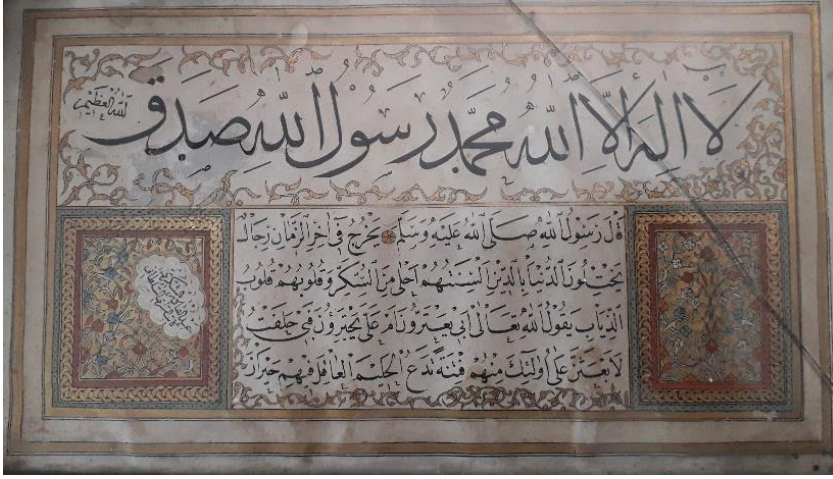 لَا اِلٰهَ اِلَّا اللّٰهُ مُحَمَّدٌ رَسُولُ اللّٰهِ صَدَقَ
اللّٰهُ العَظِيم
قَالَ رَسُولُ اللّٰهِ صَلَّى اللّٰهُ عَلَيْهِ وَسَلَّمَ يَخْرُجُ فِى اٰخِرِ الزَّمَانِ رِجَالٌ
يَخْتِلُونَ الدُّنْيَا بِالدِّينِ اَلْسِنَتُهُمْ اَحْلٰى مِنَ السُّكَّرِ وَقُلُوبُهُمْ قُلُوبُ
الذِّيَابِ يَقُولُ اللّٰهُ تَعَالٰى اَبِى يَغْتَرُّونَ اَمْ عَلَىَّ يَجْتَرِؤُنَ فَبِى حَلَفْتُ
لَاَبْعَثَنَّ عَلٰى اُولٰئِكَ مِنْهُمْ فِتْنَةً تَدَعُ الْحَلِيمَ الْعَاقِلَ فِيهِمْ حَيْرَانَ